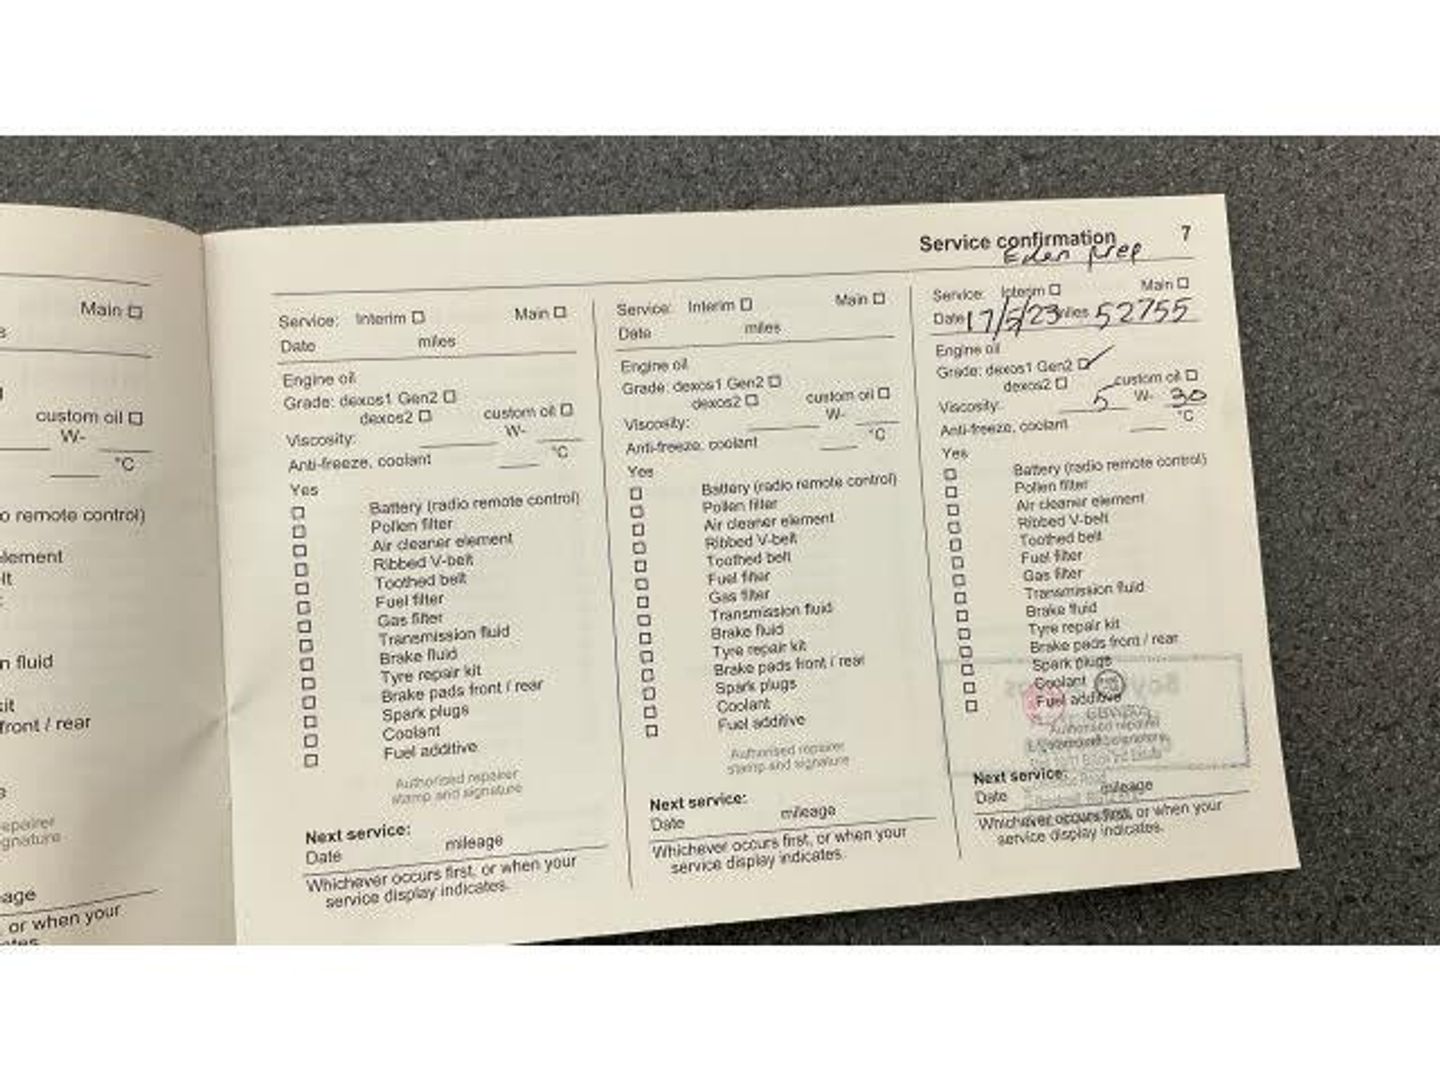 Main
s
custom oil
W-
°C
o remote control)
lement
lt
n fluid
kit
front / rear
epairer
gnature
age
or when your
Service confirmation 7
Eden prep
Service: Interim Main
Date miles
Engine oil
Grade: dexos1 Gen2
dexos2 custom oil
Viscosity: W-
Anti-freeze, coolant °C
Yes
Battery (radio remote control)
Pollen filter
Air cleaner element
Ribbed V-belt
Toothed belt
Fuel filter
Gas filter
Transmission fluid
Brake fluid
Tyre repair kit
Brake pads front / rear
Spark plugs
Coolant
Fuel additive
Authorised repairer
stamp and signature
Next service:
Date mileage
Whichever occurs first, or when your
service display indicates.
Service: Interim Main
Date miles
Engine oil
Grade: dexos1 Gen2
dexos2 custom oil
Viscosity: W-
Anti-freeze, coolant °C
Yes
Battery (radio remote control)
Pollen filter
Air cleaner element
Ribbed V-belt
Toothed belt
Fuel filter
Gas filter
Transmission fluid
Brake fluid
Tyre repair kit
Brake pads front / rear
Spark plugs
Coolant
Fuel additive
Authorised repairer
stamp and signature
Next service:
Date mileage
Whichever occurs first, or when your
service display indicates.
Service: Interim Main
Date 17/5/23 miles 52755
Engine oil
Grade: dexos1 Gen2 ✓
dexos2 custom oil
Viscosity: 5 W- 30
Anti-freeze, coolant °C
Yes
Battery (radio remote control)
Pollen filter
Air cleaner element
Ribbed V-belt
Toothed belt
Fuel filter
Gas filter
Transmission fluid
Brake fluid
Tyre repair kit
Brake pads front / rear
Spark plugs
Coolant
Fuel additive
Authorised repairer
Next service:
Date mileage
Whichever occurs first, or when your
service display indicates.